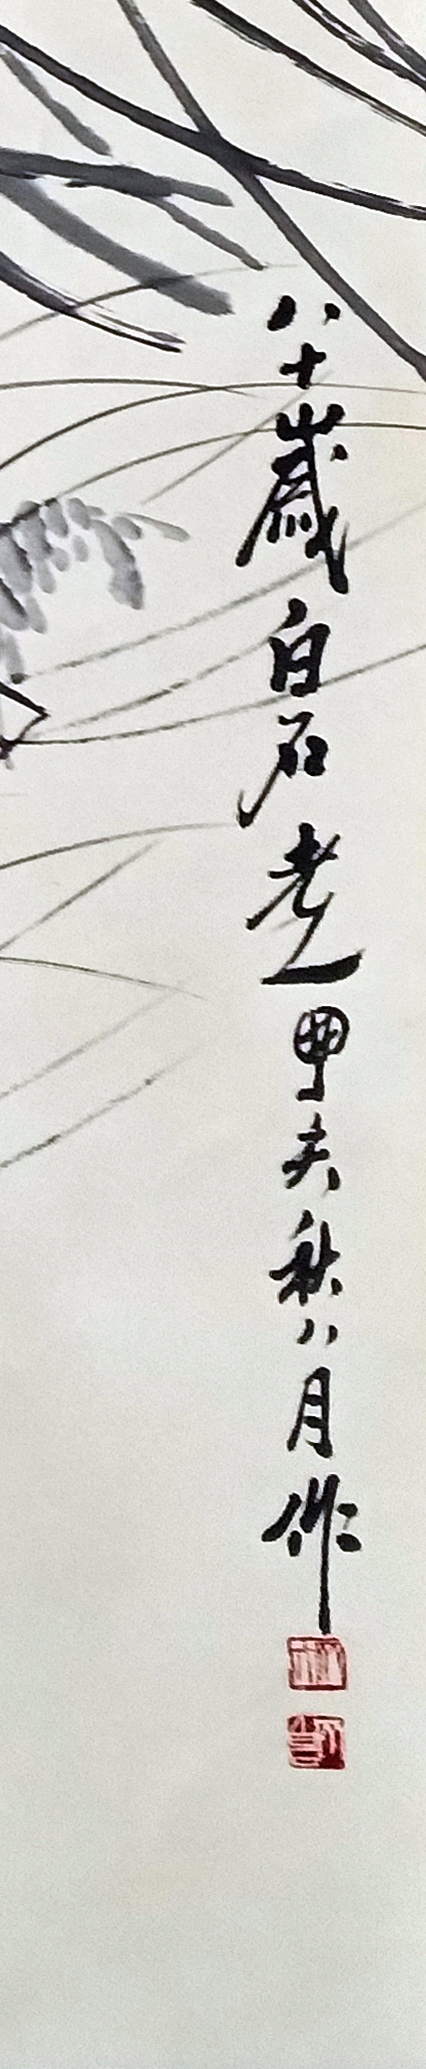 八十歲白石老人甲夫秋八月作